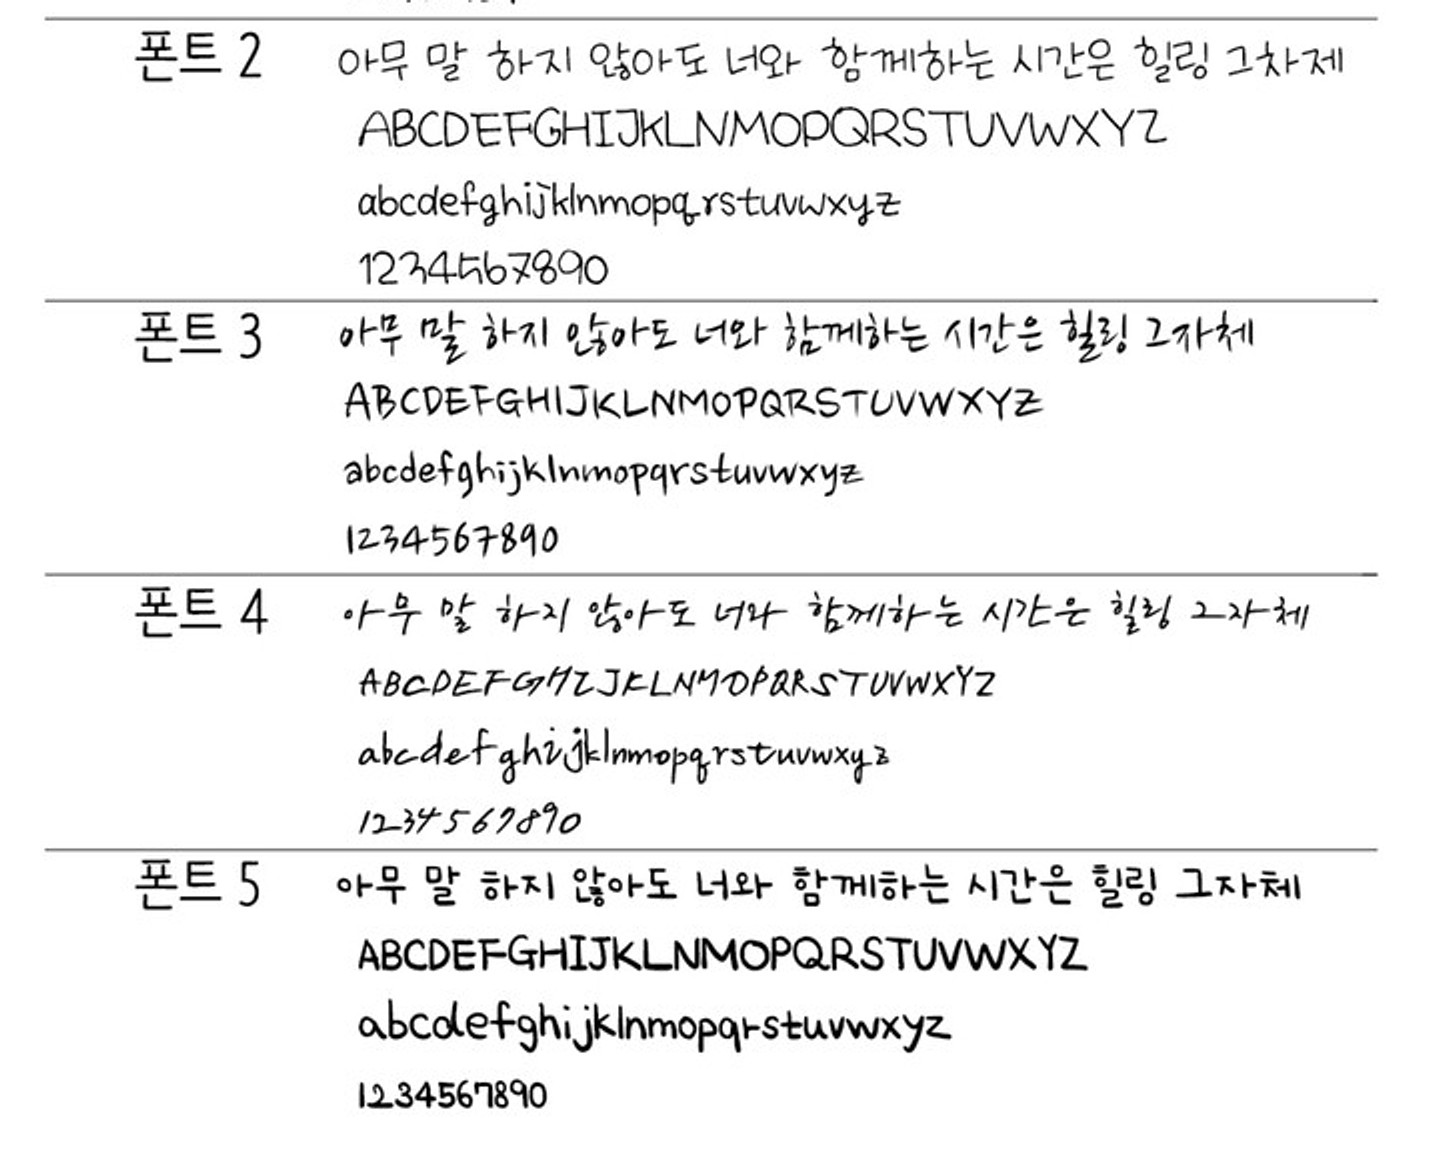 폰트 2 아무 말 하지 않아도 너와 함께하는 시간은 힐링 그차제
ABCDEFGHIJKLNMOPQRSTUVWXYZ
abcdefghijklnmopqrstuvwxyz
1234567890
폰트 3 아무 말 하지 않아도 너와 함께하는 시간은 힐링 그자체
ABCDEFGHIJKLNMOPQRSTUVWXYZ
abcdefghijklnmopqrstuvwxyz
1234567890
폰트 4 아무 말 하지 않아도 너와 함께하는 시간은 힐링 그자체
ABCDEFGHIJKLNMOPQRSTUVWXYZ
abcdefghijklnmopqrstuvwxyz
1234567890
폰트 5 아무 말 하지 않아도 너와 함께하는 시간은 힐링 그자체
ABCDEFGHIJKLNMOPQRSTUVWXYZ
abcdefghijklnmopqrstuvwxyz
1234567890